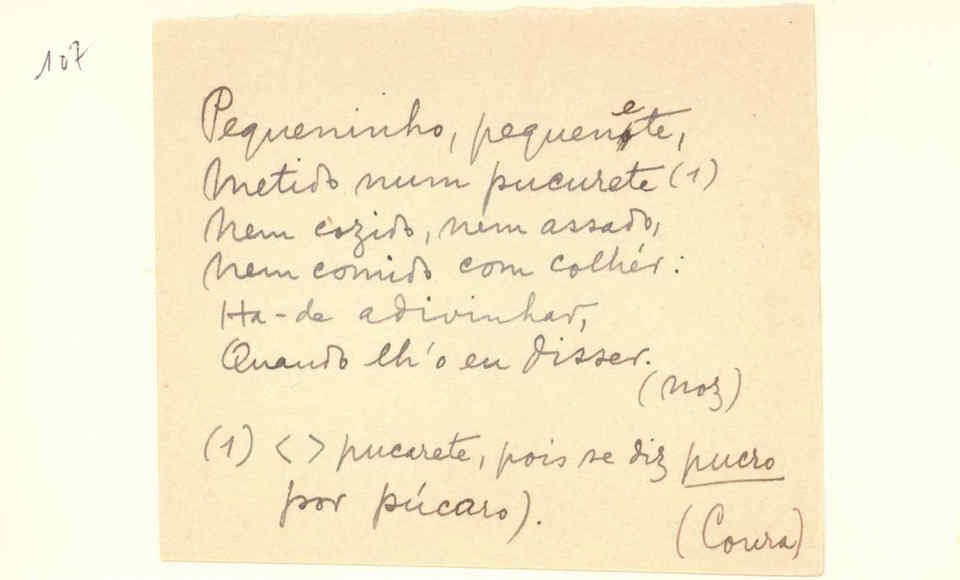 107
Pequeninho, pequenete,
Metido num pucurete (1)
Nem cozido, nem assado,
Nem comido com colhér:
Ha-de adivinhar,
Quando lh'o eu disser.
(Noz)
(1) < > pucarete, pois se diz pucro
por púcaro).
(Coura)